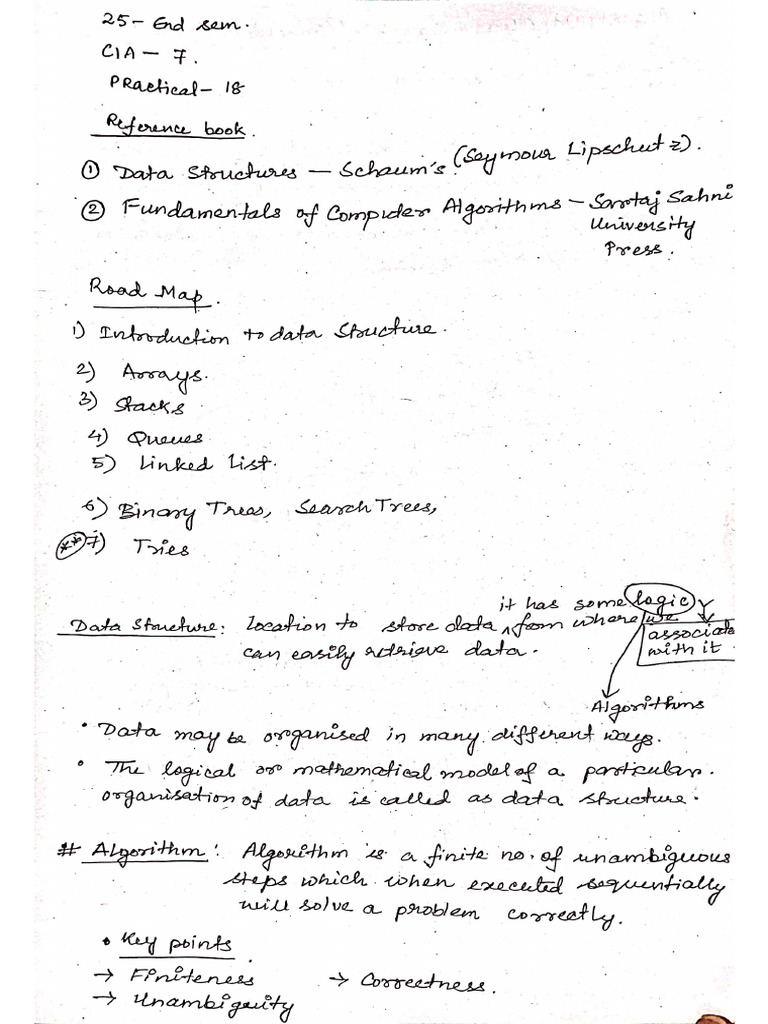 25- End sem.
CIA - 7.
PRactical- 18
Reference book.
① Data Structures - Schaum's (Seymour Lipschutz).
② Fundamentals of Computer Algorithms - Sartaj Sahni
University
Press.
Road Map.
1) Introduction to data Structure.
2) Arrays.
3) Stacks
4) Queues
5) Linked List.
6) Binary Trees, Search Trees,
** 7) Tries
it has some logic
Data Structure: location to store data ^ from where we
associate
with it.
can easily retrieve data.
Algorithms
• Data may be organised in many different ways.
• The logical or mathematical model of a particular.
organisation of data is called as data structure.
# Algorithm: Algorithm is a finite no. of unambiguous
steps which when executed sequentially
will solve a problem correctly.
• Key points
→ Finiteness → Correctness.
→ Unambiguity